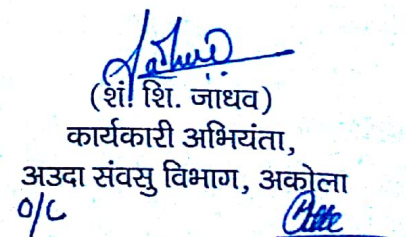 (शं. शि. जाधव)
कार्यकारी अभियंता,
अउदा संवसु विभाग, अकोला
o/c